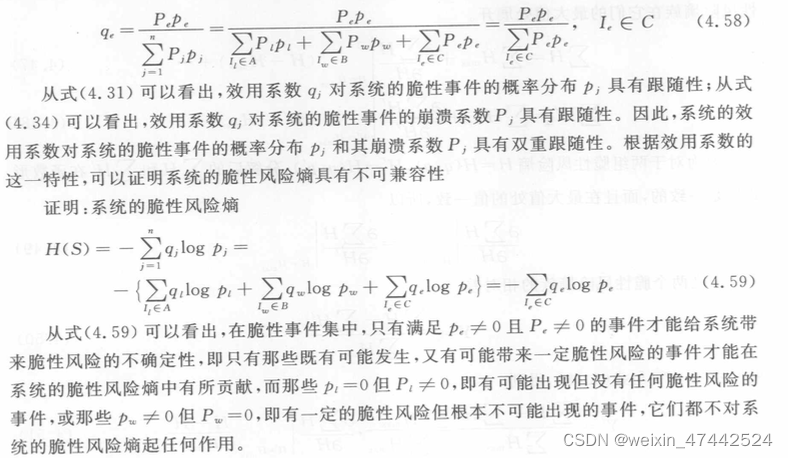 q_e = \frac{P_e p_e}{\sum_{j=1}^{n} P_j p_j} = \frac{P_e p_e}{\sum_{I_l \in A} P_l p_l + \sum_{I_w \in B} P_w p_w + \sum_{I_e \in C} P_e p_e} = \frac{P_e p_e}{\sum_{I_e \in C} P_e p_e}, I_e \in C (4.58)
从式(4.31) 可以看出,效用系数 q_j 对系统的脆性事件的概率分布 p_j 具有跟随性;从式
(4.34) 可以看出,效用系数 q_j 对系统的脆性事件的崩溃系数 P_j 具有跟随性。因此,系统的效
用系数对系统的脆性事件的概率分布 p_j 和其崩溃系数 P_j 具有双重跟随性。根据效用系数的
这一特性,可以证明系统的脆性风险熵具有不可兼容性
证明:系统的脆性风险熵
H(S) = - \sum_{j=1}^{n} q_j \log p_j =
- \{ \sum_{I_l \in A} q_l \log p_l + \sum_{I_w \in B} q_w \log p_w + \sum_{I_e \in C} q_e \log p_e \} = - \sum_{I_e \in C} q_e \log p_e (4.59)
从式(4.59) 可以看出,在脆性事件集中,只有满足 p_e ≠ 0 且 P_e ≠ 0 的事件才能给系统带
来脆性风险的不确定性,即只有那些既有可能发生,又有可能带来一定脆性风险的事件才能在
系统的脆性风险熵中有所贡献,而那些 p_l = 0 但 P_l ≠ 0,即有可能出现但没有任何脆性风险的
事件,或那些 p_w ≠ 0 但 P_w = 0,即有一定的脆性风险但根本不可能出现的事件,它们都不对系
统的脆性风险熵起任何作用。
CSDN @weixin_47442524